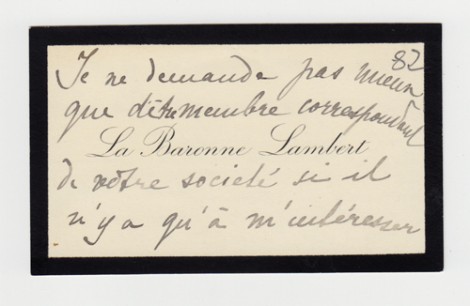 82
Je ne demande pas mieux
que d'être membre correspondant
La Baronne Lambert
de vôtre societé si il
n'y a qu'à m'intéresser